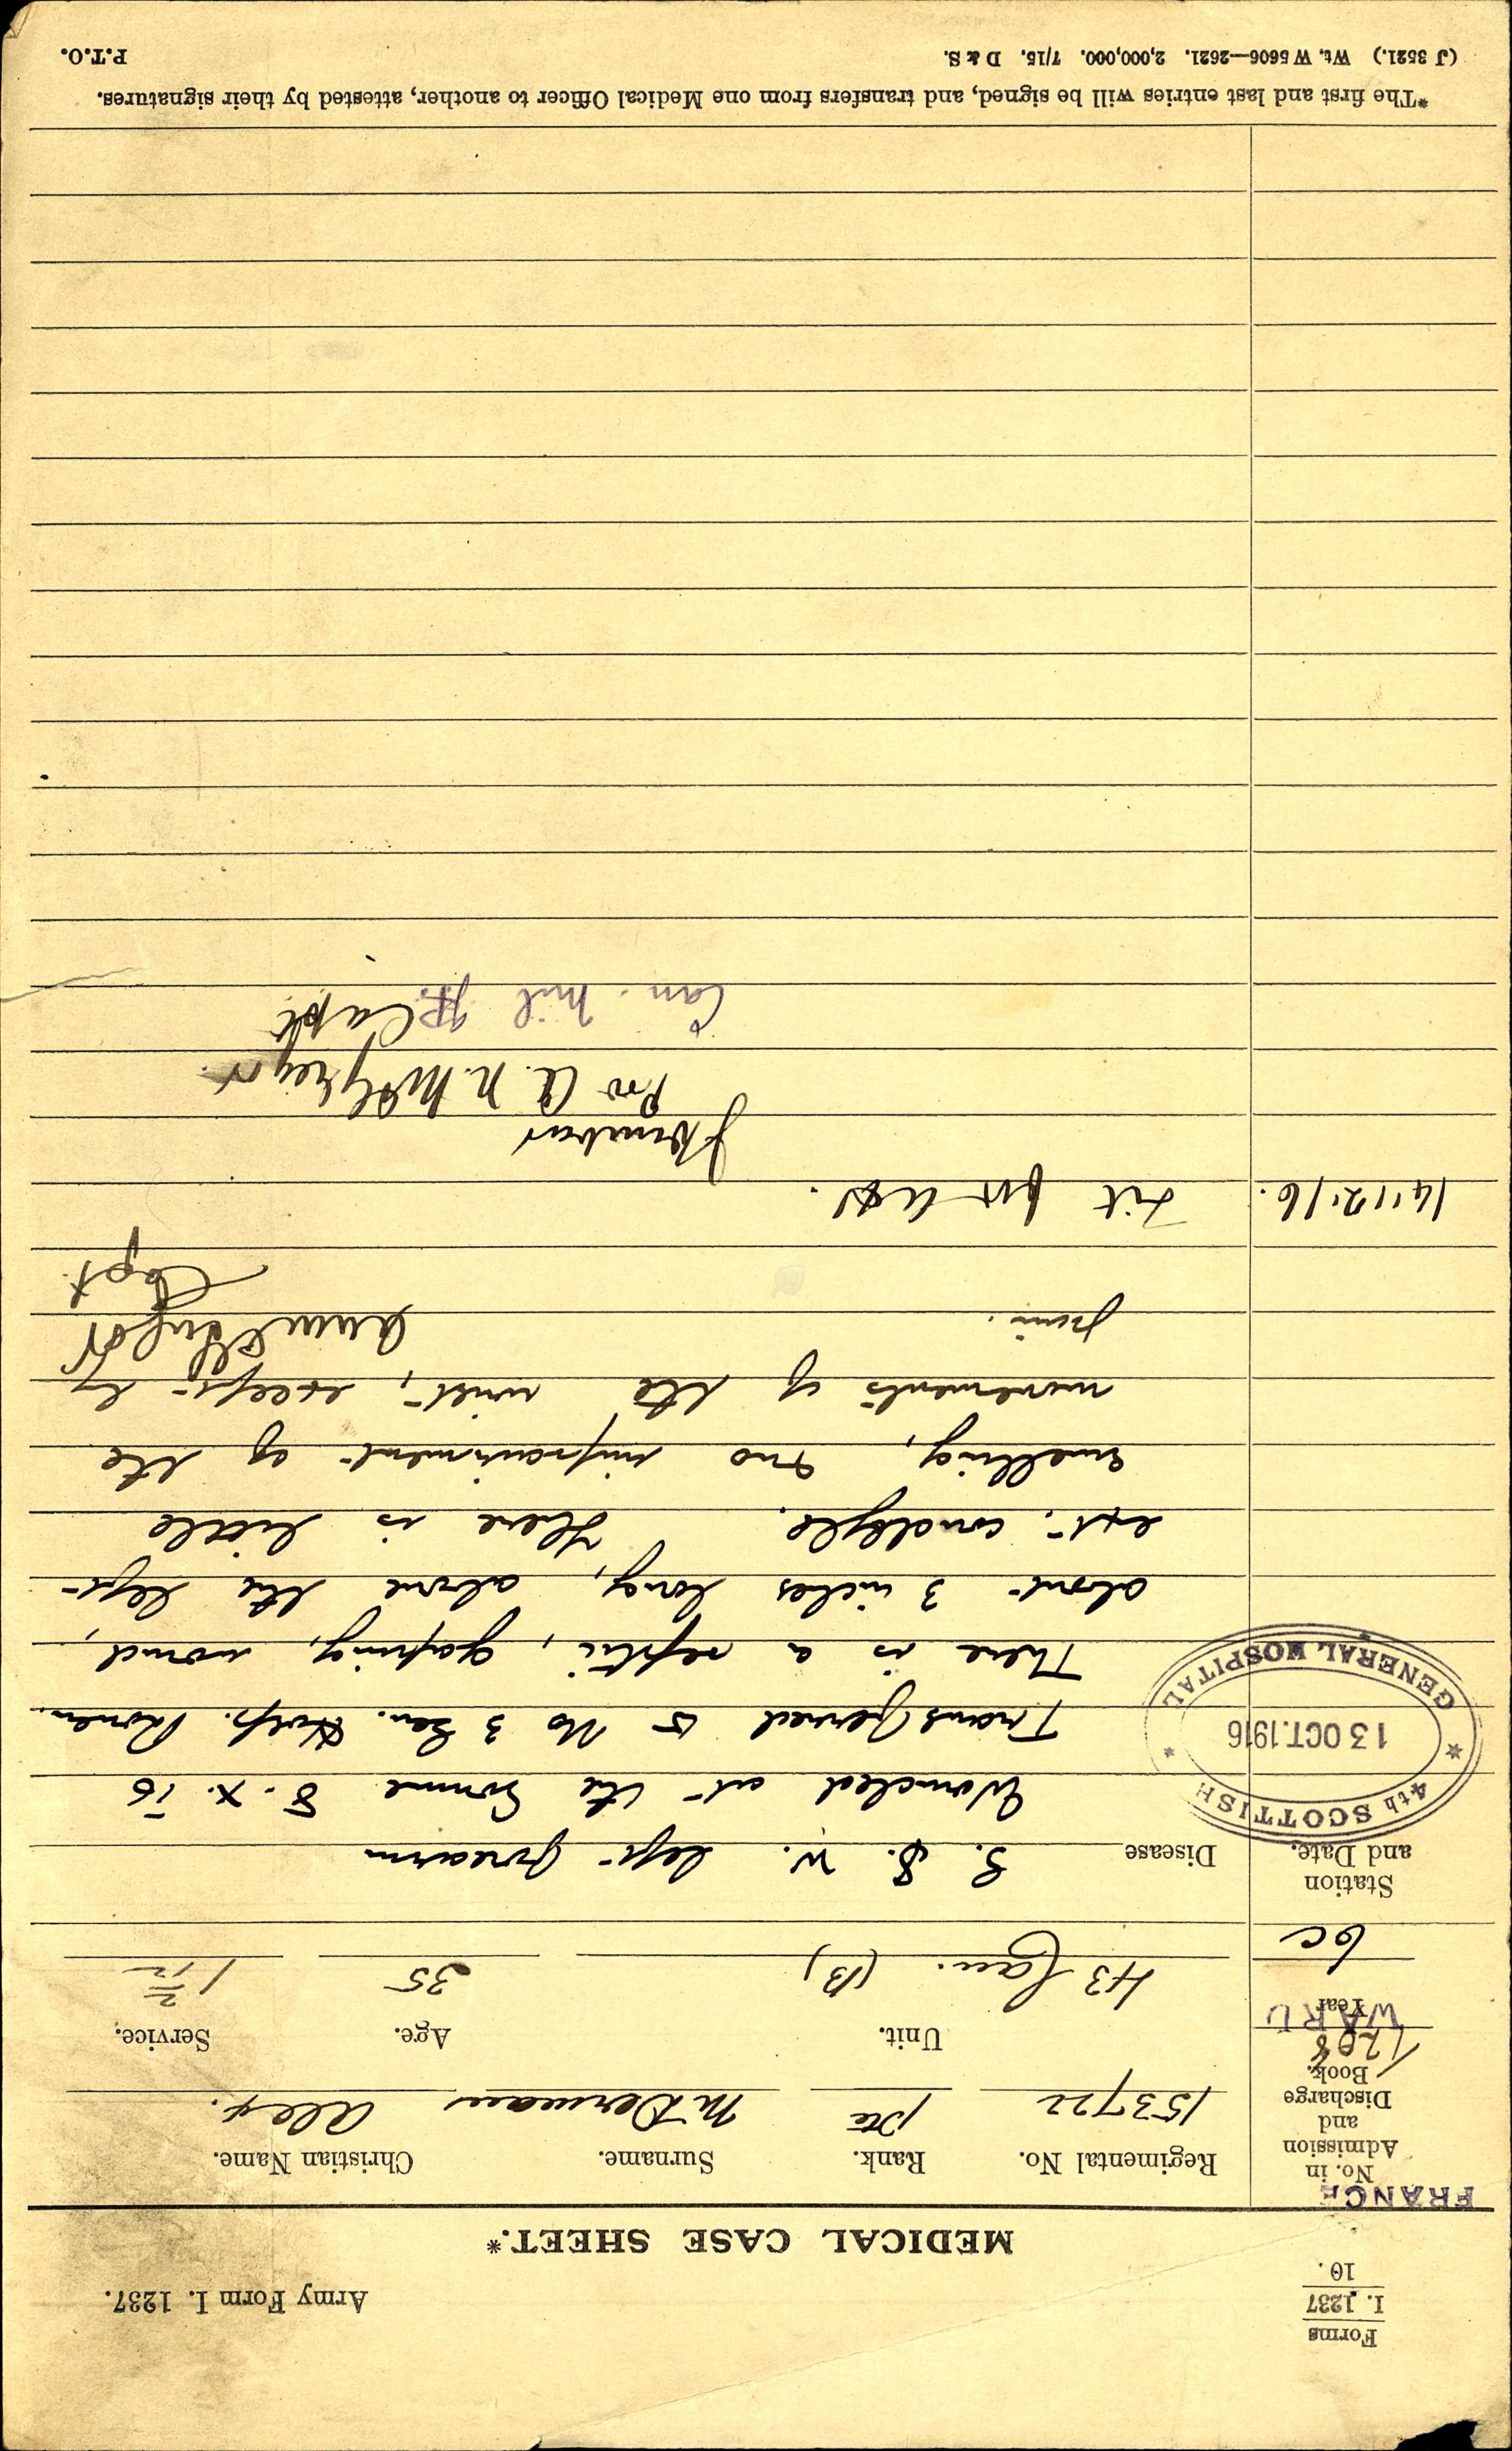 Forms
I. 1237
10.
Army Form I. 1237.
MEDICAL CASE SHEET.*
FRANCE
No. in Admission and Discharge Book.
1208
WARD
Year
6C
Regimental No. Rank. Surname. Christian Name.
153722 Pte McDermaid Alex.
Unit. Age. Service.
43 Can. (B) 35 1 2/12
Station and Date.
Disease G. S. W. left forearm
4th SCOTTISH
13 OCT. 1916
GENERAL HOSPITAL
Wounded at the Somme 8. X. 16
Transferred to No 3 Gen. Hosp. Rouen.
There is a septic, gaping, wound,
about 3 inches long, above the left
ext. condyle. There is little
swelling, & no impairment of the
movements of the wrist, except by
pain.
Capt.
14.12.16. Fit for
Pro A. N. McGregor.
Capt.
Can. Mil. H.
*The first and last entries will be signed, and transfers from one Medical Officer to another, attested by their signatures.
(J 3521.) Wt. W 5606—2621. 2,000,000. 7/15. D & S.
P.T.O.